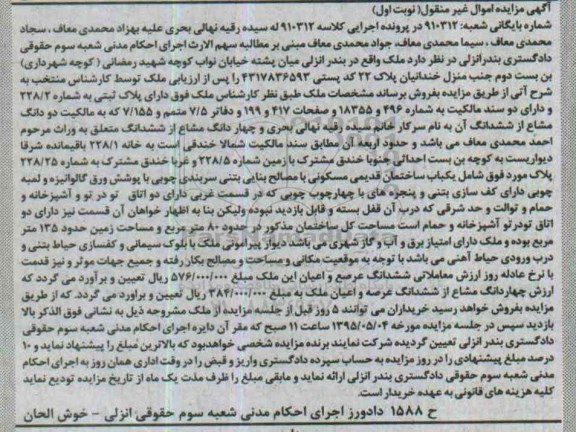 آگهی مزایده اموال غیر منقول( نوبت اول)
شماره بایگانی شعبه: ۹۱۰۳۱۲ در پرونده اجرایی کلاسه ۹۱۰۳۱۲ له سیده رقیه نهالی بحری علیه بهزاد محمدی معاف ، سجاد
محمدی معاف ، سیما محمدی معاف، جواد محمدی معاف مبنی بر مطالبه سهم الارث اجرای احکام مدنی شعبه سوم حقوقی
دادگستری بندرانزلی در نظر دارد ملک واقع در بندر انزلی میان پشته خیابان نواب کوچه شهید رمضانی ( کوچه شهرداری)
بن بست دوم جنب منزل خندانیان پلاک ۲۲ کد پستی ۴۳۱۷۸۳۶۵۹۳ را پس از ارزیابی ملک توسط کارشناس منتخب به
شرح آتی از طریق مزایده بفروش برساند مشخصات ملک طبق نظر کارشناس ملک فوق دارای پلاک ثبتی به شماره ۲۲۸/۲
و دارای دو سند مالکیت به شماره ۴۹۶ و ۱۸۳۵۵ و صفحات ۴۱۷ و ۱۹۹ و دفاتر ۷/۵ متمم و ۷/۱۵۵ که به مالکیت دو دانگ
مشاع از ششدانگ آن به نام سرکار خانم سیده رقیه نهالی بحری و چهار دانگ مشاع از ششدانگ متعلق به وراث مرحوم
احمد محمدی معاف می باشد و حدود اربعه آن مطابق سند مالکیت شمالا خندقی است به خانه ۲۲۸/۱ باقیمانده شرقا
دیواریست به کوچه بن بست احداثی جنوبا خندق مشترک با زمین شماره ۲۲۸/۵ و غربا خندق مشترک به شماره ۲۲۸/۲۵
پلاک مورد فوق شامل یکباب ساختمان قدیمی مسکونی با مصالح بنایی بتنی سربندی چوبی با پوشش ورق گالوانیزه و لمبه
چوبی دارای کف سازی بتنی و پنجره های با چهارچوب چوبی که در قسمت غربی دارای دو اتاق تو در تو و آشپزخانه و
حمام و توالت و حد شرقی که درب آن قفل بسته و قابل بازدید نبوده ولیکن بنا به اظهار خواهان آن قسمت نیز دارای دو
اتاق تودرتو آشپزخانه و حمام است مساحت کل ساختمان مذکور در حدود ۸۰ متر مربع و مساحت زمین حدود ۱۳۵ متر
مربع بوده و ملک دارای امتیاز برق و آب و گاز شهری می باشد دیوار پیرامونی ملک با بلوک سیمانی و کفسازی حیاط بتنی و
درب ورودی حیاط آهنی می باشد با توجه به موقعیت مکانی و مساحت و مصالح بکار رفته و جمیع جهات موثر و نیز قدمت
با نرخ عادله روز ارزش معاملاتی ششدانگ عرصه و اعیان این ملک مبلغ ۵۷۶/۰۰۰/۰۰۰ ریال تعیین و برآورد می گردد که
ارزش چهاردانگ مشاع از ششدانگ عرصه و اعیان ملک به مبلغ ۳۸۴/۰۰۰/۰۰۰ ریال تعیین و برآورد می گردد. که از طریق
مزایده بفروش خواهد رسید خریداران می توانند ۵ روز قبل از جلسه مزایده از ملک مشروحه ذیل به نشانی فوق الذکر بالا
بازدید سپس در جلسه مزایده مورخه ۱۳۹۵/۰۵/۰۴ ساعت ۱۱ صبح که مقر آن دایره اجرای احکام مدنی شعبه سوم حقوقی
دادگستری بندر انزلی تعیین گردیده شرکت نمایند برنده مزایده شخصی خواهدبود که بالاترین مبلغ را پیشنهاد نماید و ۱۰
درصد مبلغ پیشنهادی را در روز مزایده به حساب سپرده دادگستری واریز و قبض را در وقت اداری همان روز به اجرای احکام
مدنی شعبه سوم حقوقی دادگستری بندر انزلی ارائه نماید و مابقی مبلغ را ظرف مدت یک ماه از تاریخ مزایده تودیع نماید
کلیه هزینه های قانونی به عهده خریدار است.
ح ۱۵۸۸ دادورز اجرای احکام مدنی شعبه سوم حقوقی انزلی – خوش الحان